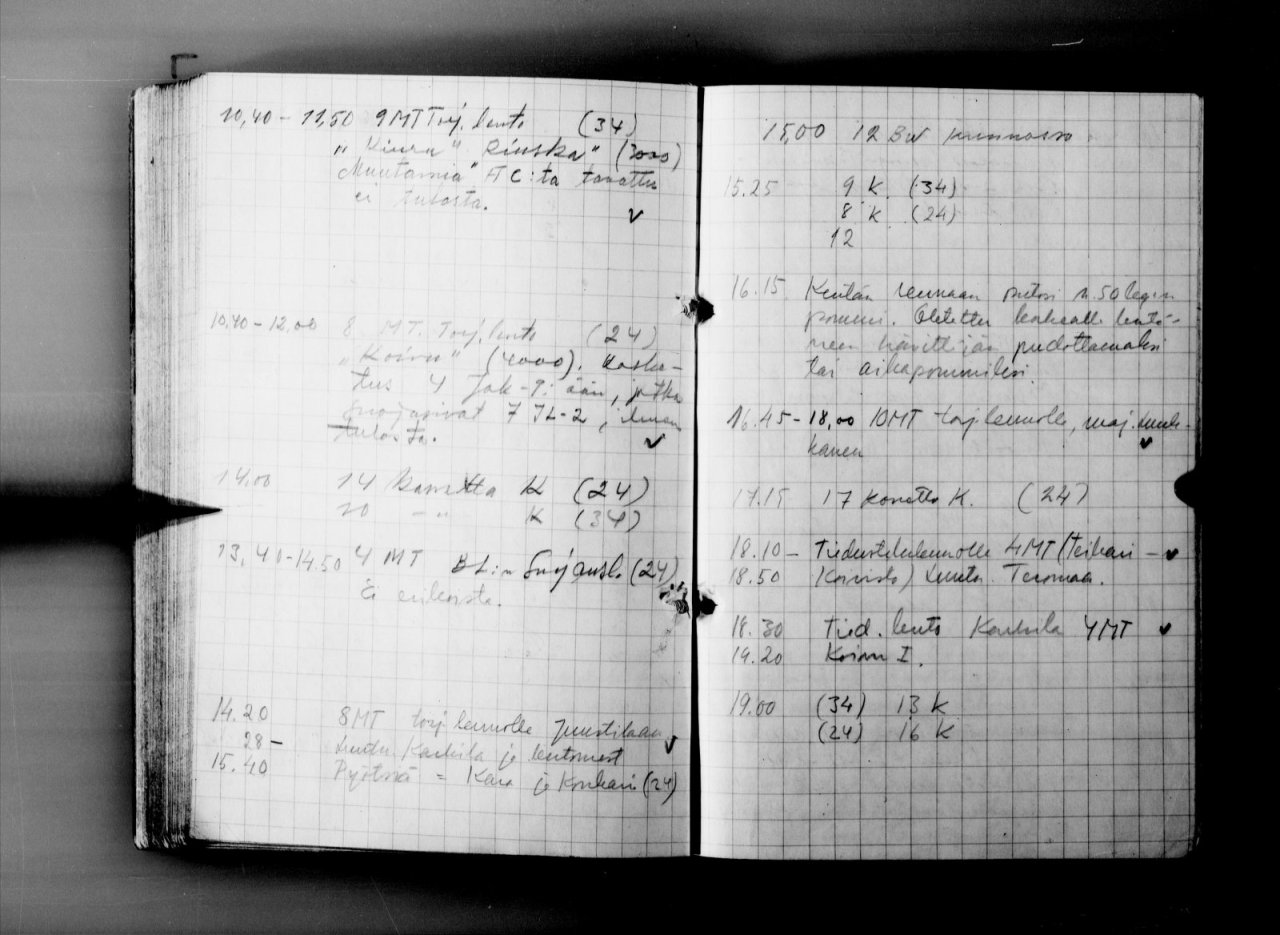 10,40 - 11,50 9 MT Torj. lento (34)
„ Kiura " Rinska " (3000)
Muutamia AC:ta tavattu
ei tulosta.
10,40 - 12,00 8 MT. Torj. lento (24)
„Koivu" (4000). Koske-
tus 4 Jak-9: ään, jotka
suojasivat 7 JL-2, ilman
tulosta.
14,00 14 konetta K (24)
20 - " K (34)
13,40-14.50 4 MT suojausl. (24)
Ei erikoista.
14.20 8 MT torj lennolle Juustilaan
28 - Luutn Karhila ja lentomest
15.40 Pyötsiä = Kara ja (24)
15,00 12 BW kunnossa
15.25 9 K. (34)
8 K. (24)
12
16.15. Kentän reunaan putosi n. 50 kg:n
pommi. Oletettu korkealla lentä-
neen hävittäjän pudottamaksi
tai aikapommiksi.
16.45 - 18,00 10 MT torj lennolle, maj. Luuk-
kanen
17.15 17 konetta K. (24)
18.10 - Tiedustelulennolle 4 MT (Teikari -
18.50 Koivisto) Luutn. Teromaa.
18.30 Tied. lento Karhila 4 MT
19.20 Koivu I.
19.00 (34) 13 K
(24) 16 K